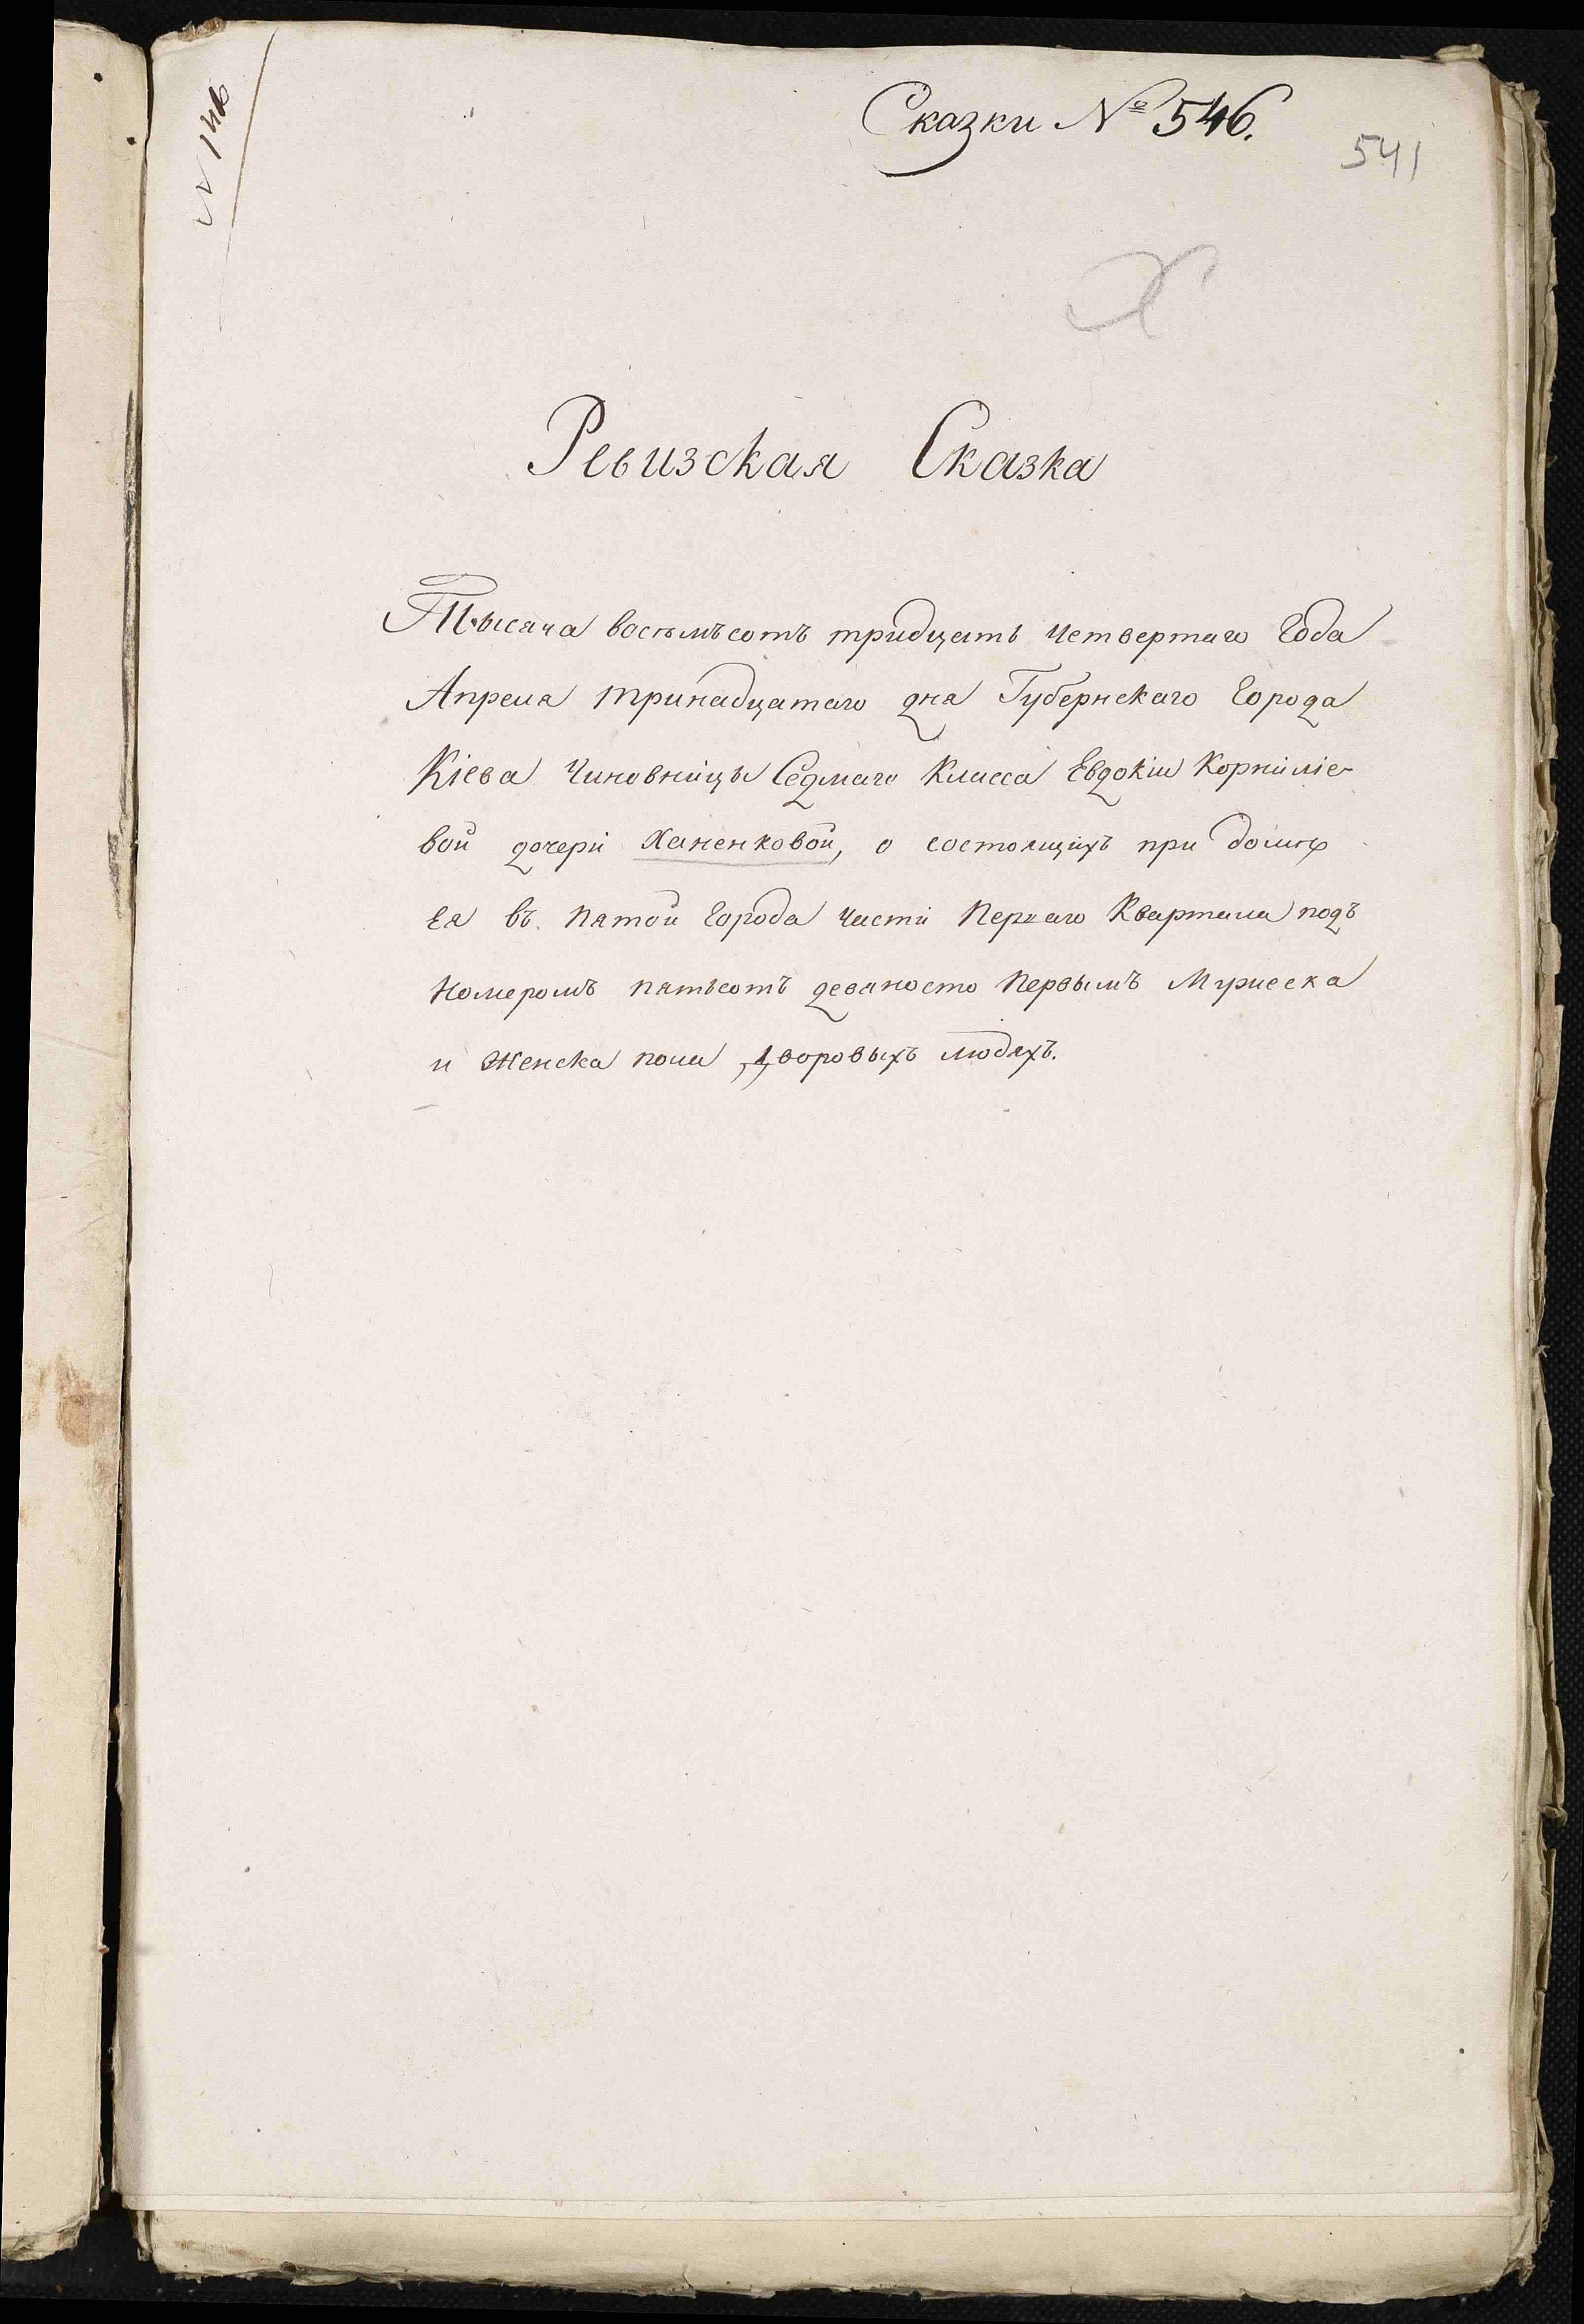 № 146
Сказки № 546.
541
Х
Ревизская Сказка
Тысяча восьмьсотъ тридцать четвертаго Года
Апреля тринадцатаго дня Губернскаго Города
Кіева Чиновницы Седмаго Класса Евдокіи Корниліе-
вой дочери Ханенковой, о состоящихъ при домѣ
Ея въ Пятой Города Части Перваго Квартала подъ
Номеромъ пятьсотъ девяносто Первымъ Мужеска
и Женска пола Дворовыхъ людяхъ.